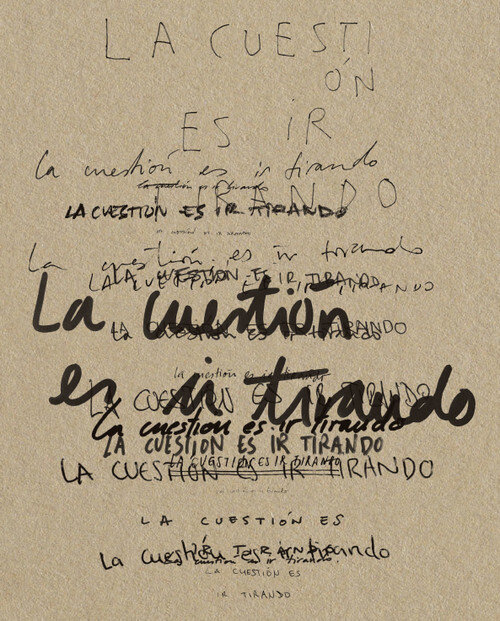 LA CUESTI
ÓN
ES IR
La cuestión es ir tirando
La cuestión es ir tirando
TIRANDO
LA CUESTIÓN ES IR TIRANDO
La cuestión es ir tirando
LA CUESTIÓN ES IR TIRANDO
LA CUESTIÓN ES IR TIRANDO
La cuestión
LA CUESTIÓN ES IR TIRANDO
La cuestión es ir tirando
es ir tirando
LA CUESTIÓN ES IR TIRANDO
La cuestión es ir tirando
LA CUESTIÓN ES IR TIRANDO
LA CUESTIÓN ES IR TIRANDO
LA CUESTIÓN ES IR TIRANDO
LA CUESTIÓN ES
IR TIRANDO
La cuestión es ir tirando
La cuestión es ir tirando.
LA CUESTIÓN ES
IR TIRANDO